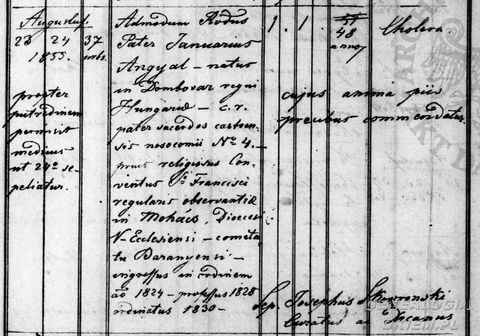 Augustus.
23 24 37
1855. urbs.
propter
putredinem
permisit
medicus
ut 24ta se-
peliatur.
Admodum Rvdus
Pater Januarius
Angyal – natus
in Dombovar regni
Hungariæ – c. r.
pater sacerdos castren-
sis nosocomii No 4.
prius religiosus Con-
ventus Sti Francisci
regularis observantiæ
in Mohacs, Dioecesi
V-Ecclesiensi – comita-
tu Baranyensi –
ingressus in ordinem
ao 1824 – professus 1828
ordinatus 1830 –
1. 1
48
annor
Cholera.
cujus anima piis
precibus commendatur.
Sep. Josephus Skowronski
Curatus ac Decanus